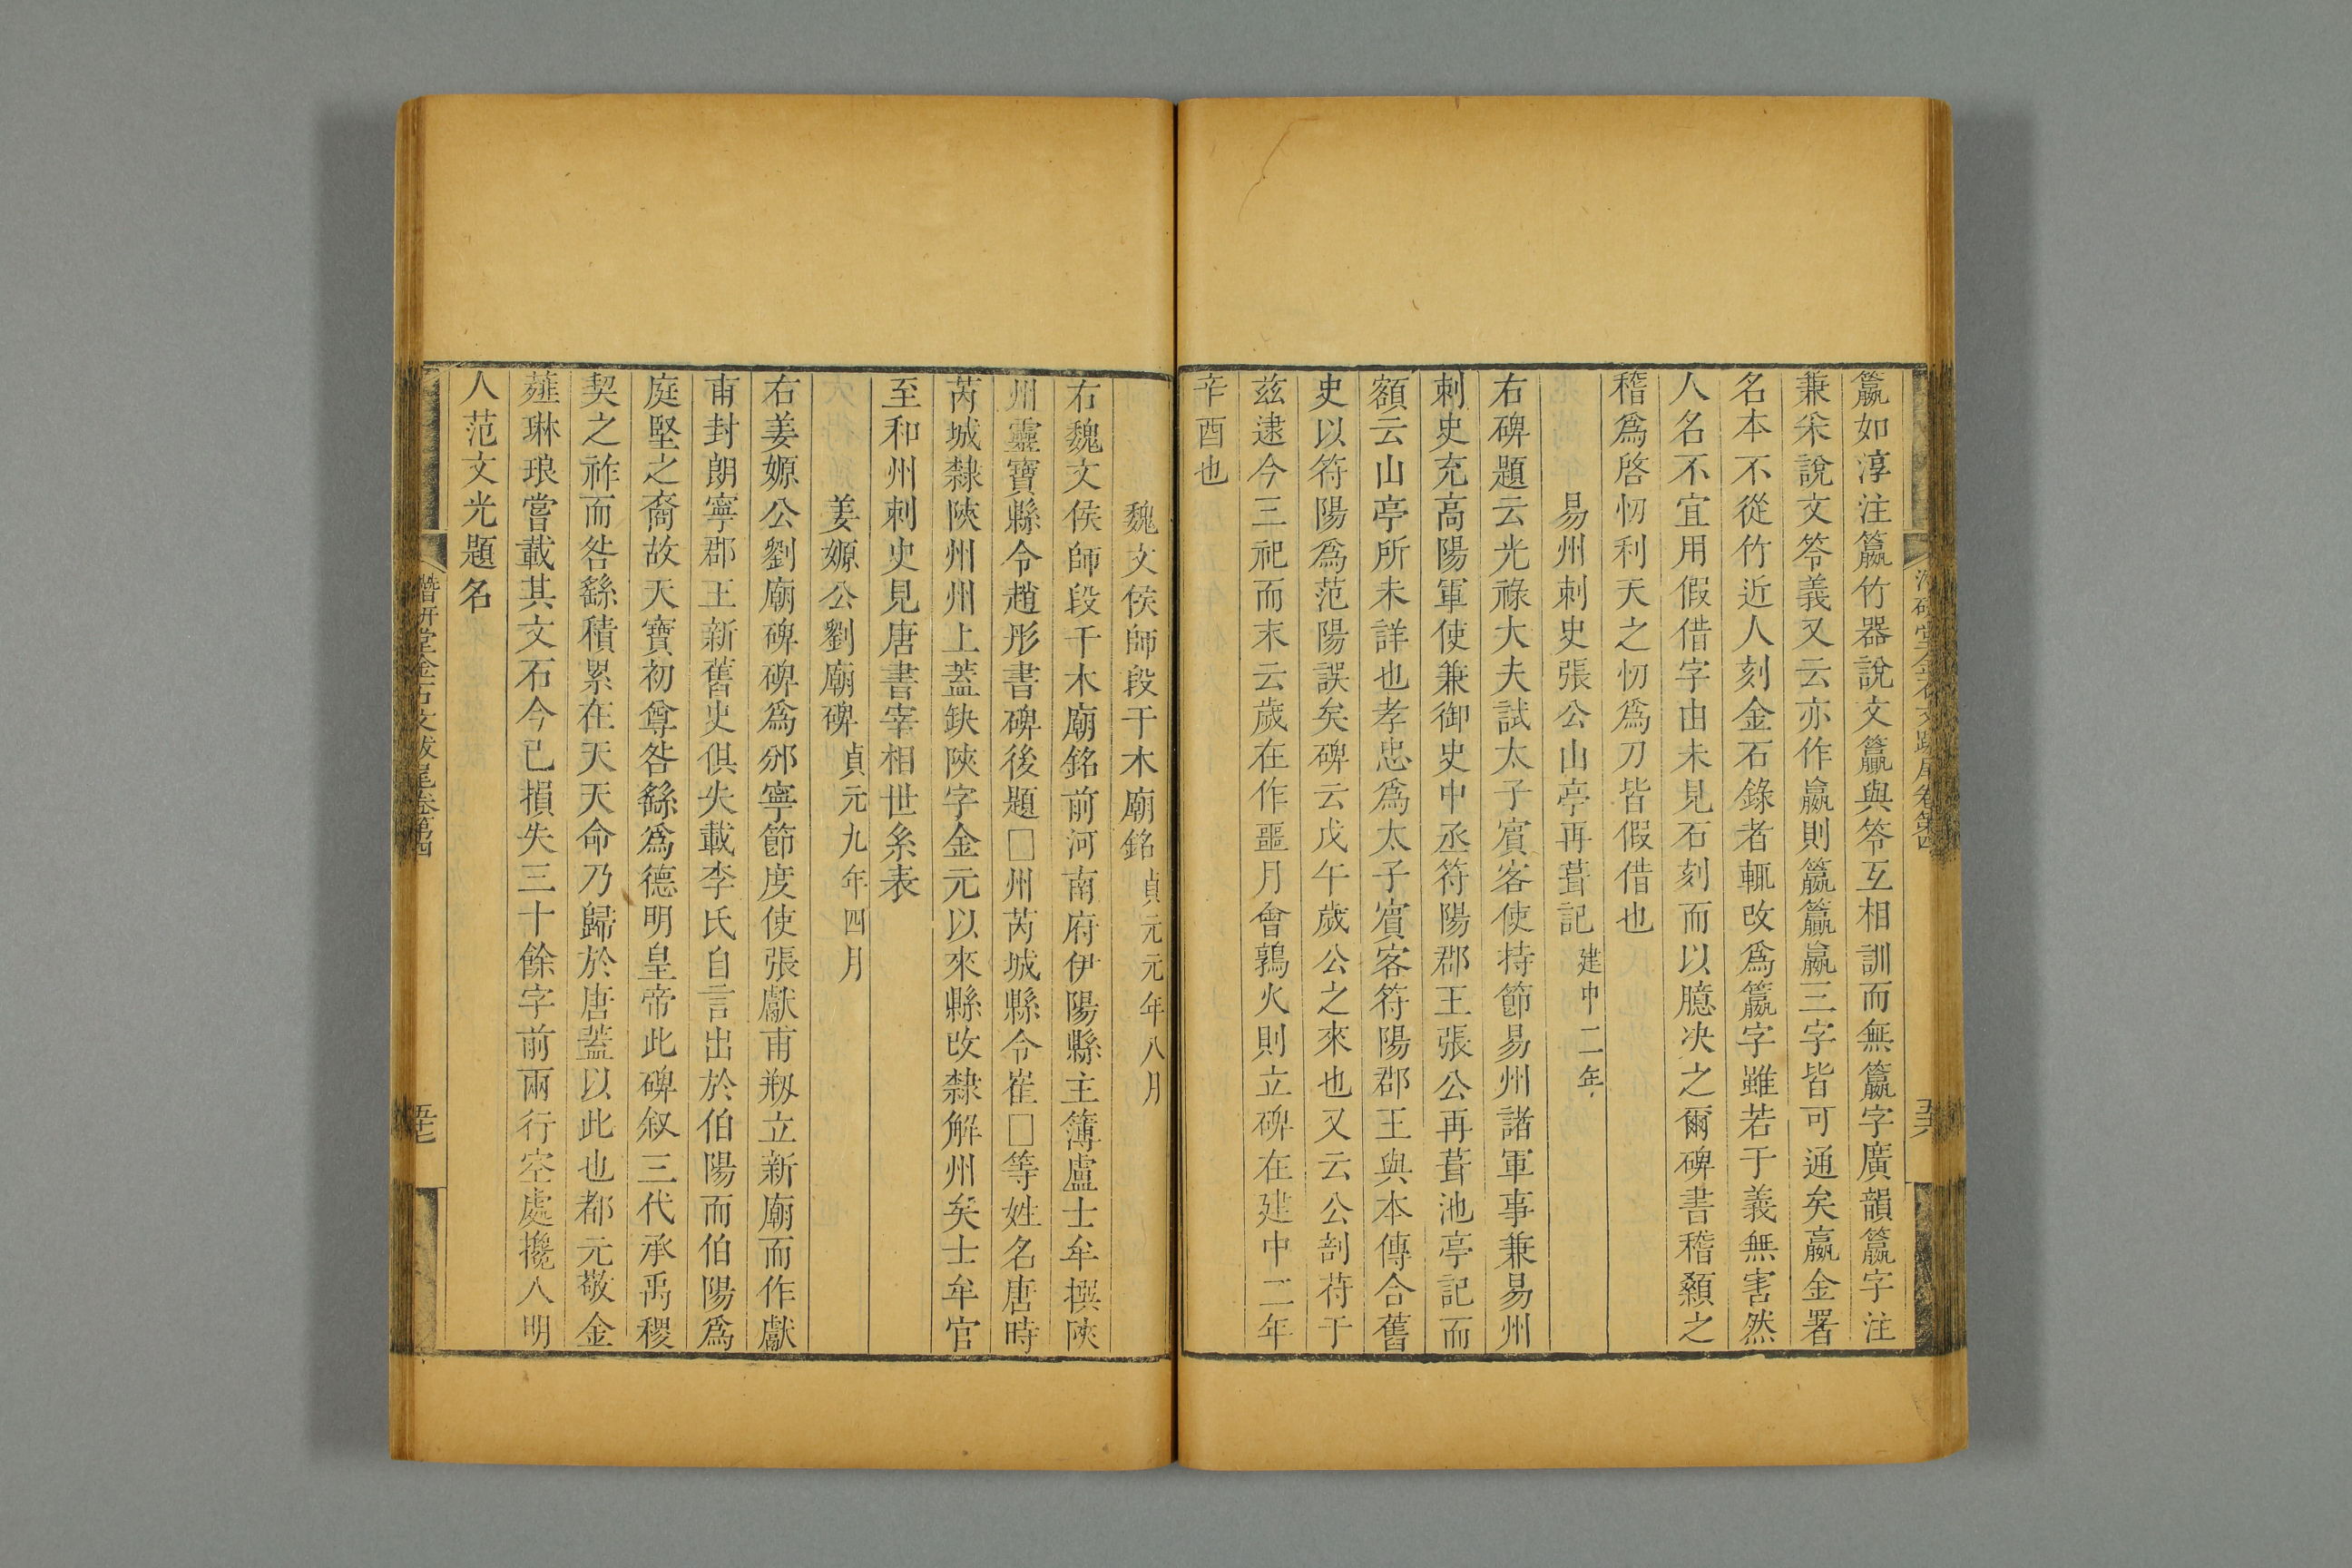 籯如淳注籯竹器說文籝與笭互相訓而無籯字廣韻籯字注
兼采說文笭義又云亦作籝則籯籝籝三字皆可通矣嬴金署
名本不從竹近人刻金石錄者輒改爲籯字雖若于義無害然
人名不宜用假借字由未見石刻而以臆決之爾碑書稽顙之
稽爲啓忉利天之忉爲刀皆假借也
易州刺史張公山亭再葺記建中二年
右碑題云光祿大夫試太子賓客使持節易州諸軍事兼易州
刺史充高陽軍使兼御史中丞符陽郡王張公再葺池亭記而
額云山亭所未詳也孝忠爲太子賓客符陽郡王與本傳合舊
史以符陽爲范陽誤矣碑云戊午歲公之來也又云公剖苻于
茲逮今三祀而末云歲在作噩月會鶉火則立碑在建中二年
辛酉也
魏文侯師段干木廟銘貞元元年八月
右魏文侯師段干木廟銘前河南府伊陽縣主簿盧士牟撰陝
州靈寶縣令趙彤書碑後題□州芮城縣令崔□等姓名唐時
芮城隸陝州州上蓋缺陝字金元以來縣改隸解州矣士牟官
至和州刺史見唐書宰相世系表
姜嫄公劉廟碑貞元九年四月
右姜嫄公劉廟碑碑爲邠寧節度使張獻甫刱立新廟而作獻
甫封朗寧郡王新舊史俱失載李氏自言出於伯陽而伯陽爲
庭堅之裔故天寶初尊咎繇爲德明皇帝此碑叙三代承禹稷
契之祚而咎繇積累在天天命乃歸於唐蓋以此也都元敬金
薤琳琅嘗載其文石今已損失三十餘字前兩行空處攙入明
人范文光題名
潛研堂金石文跋尾卷第四